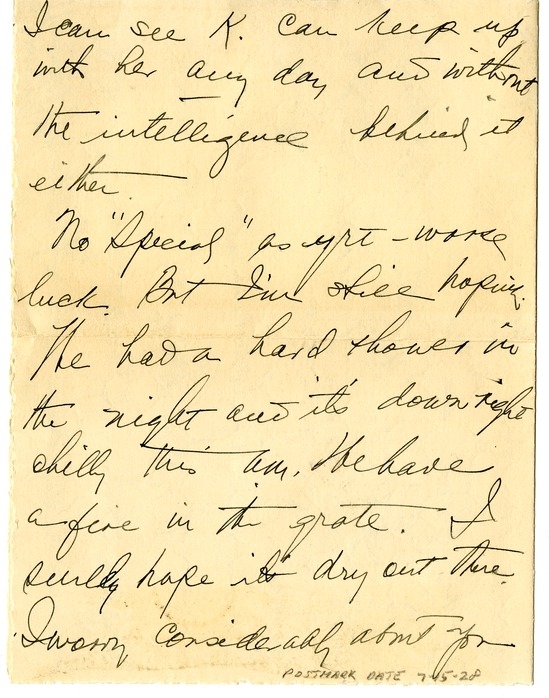 I can see K. can keep up
with her any day and without
the intelligence behind it
either.
No "Special" as yet - worse
luck. But I'm still hoping.
We had a hard shower in
the night and it's down right
chilly this am. We have
a fire in the grate. I
surely hope it's dry out there.
I worry considerably about you
POSTMARK DATE 7-15-28